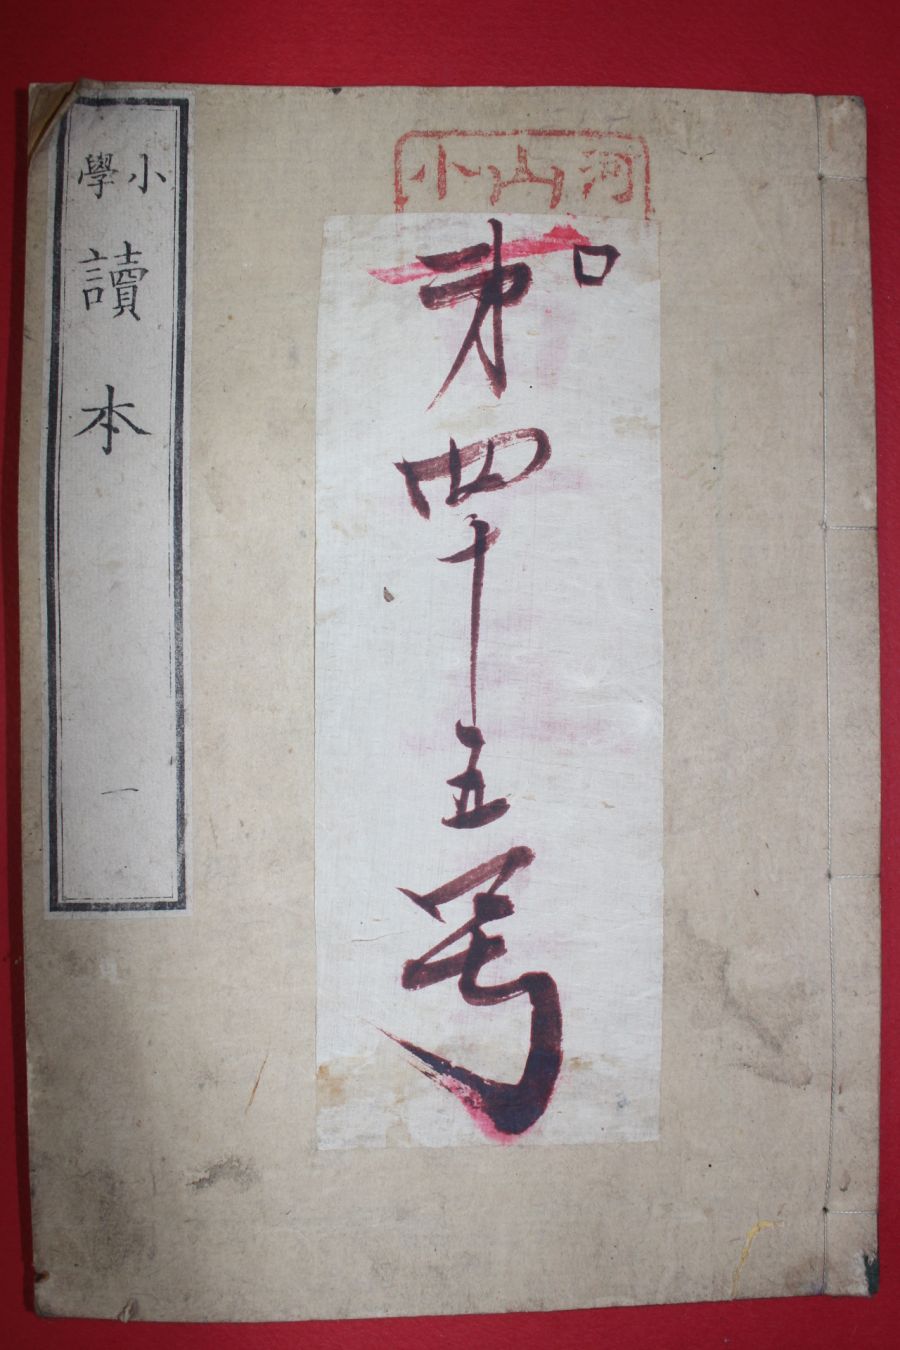 河山小
口
第四十五号
小學
讀本
一